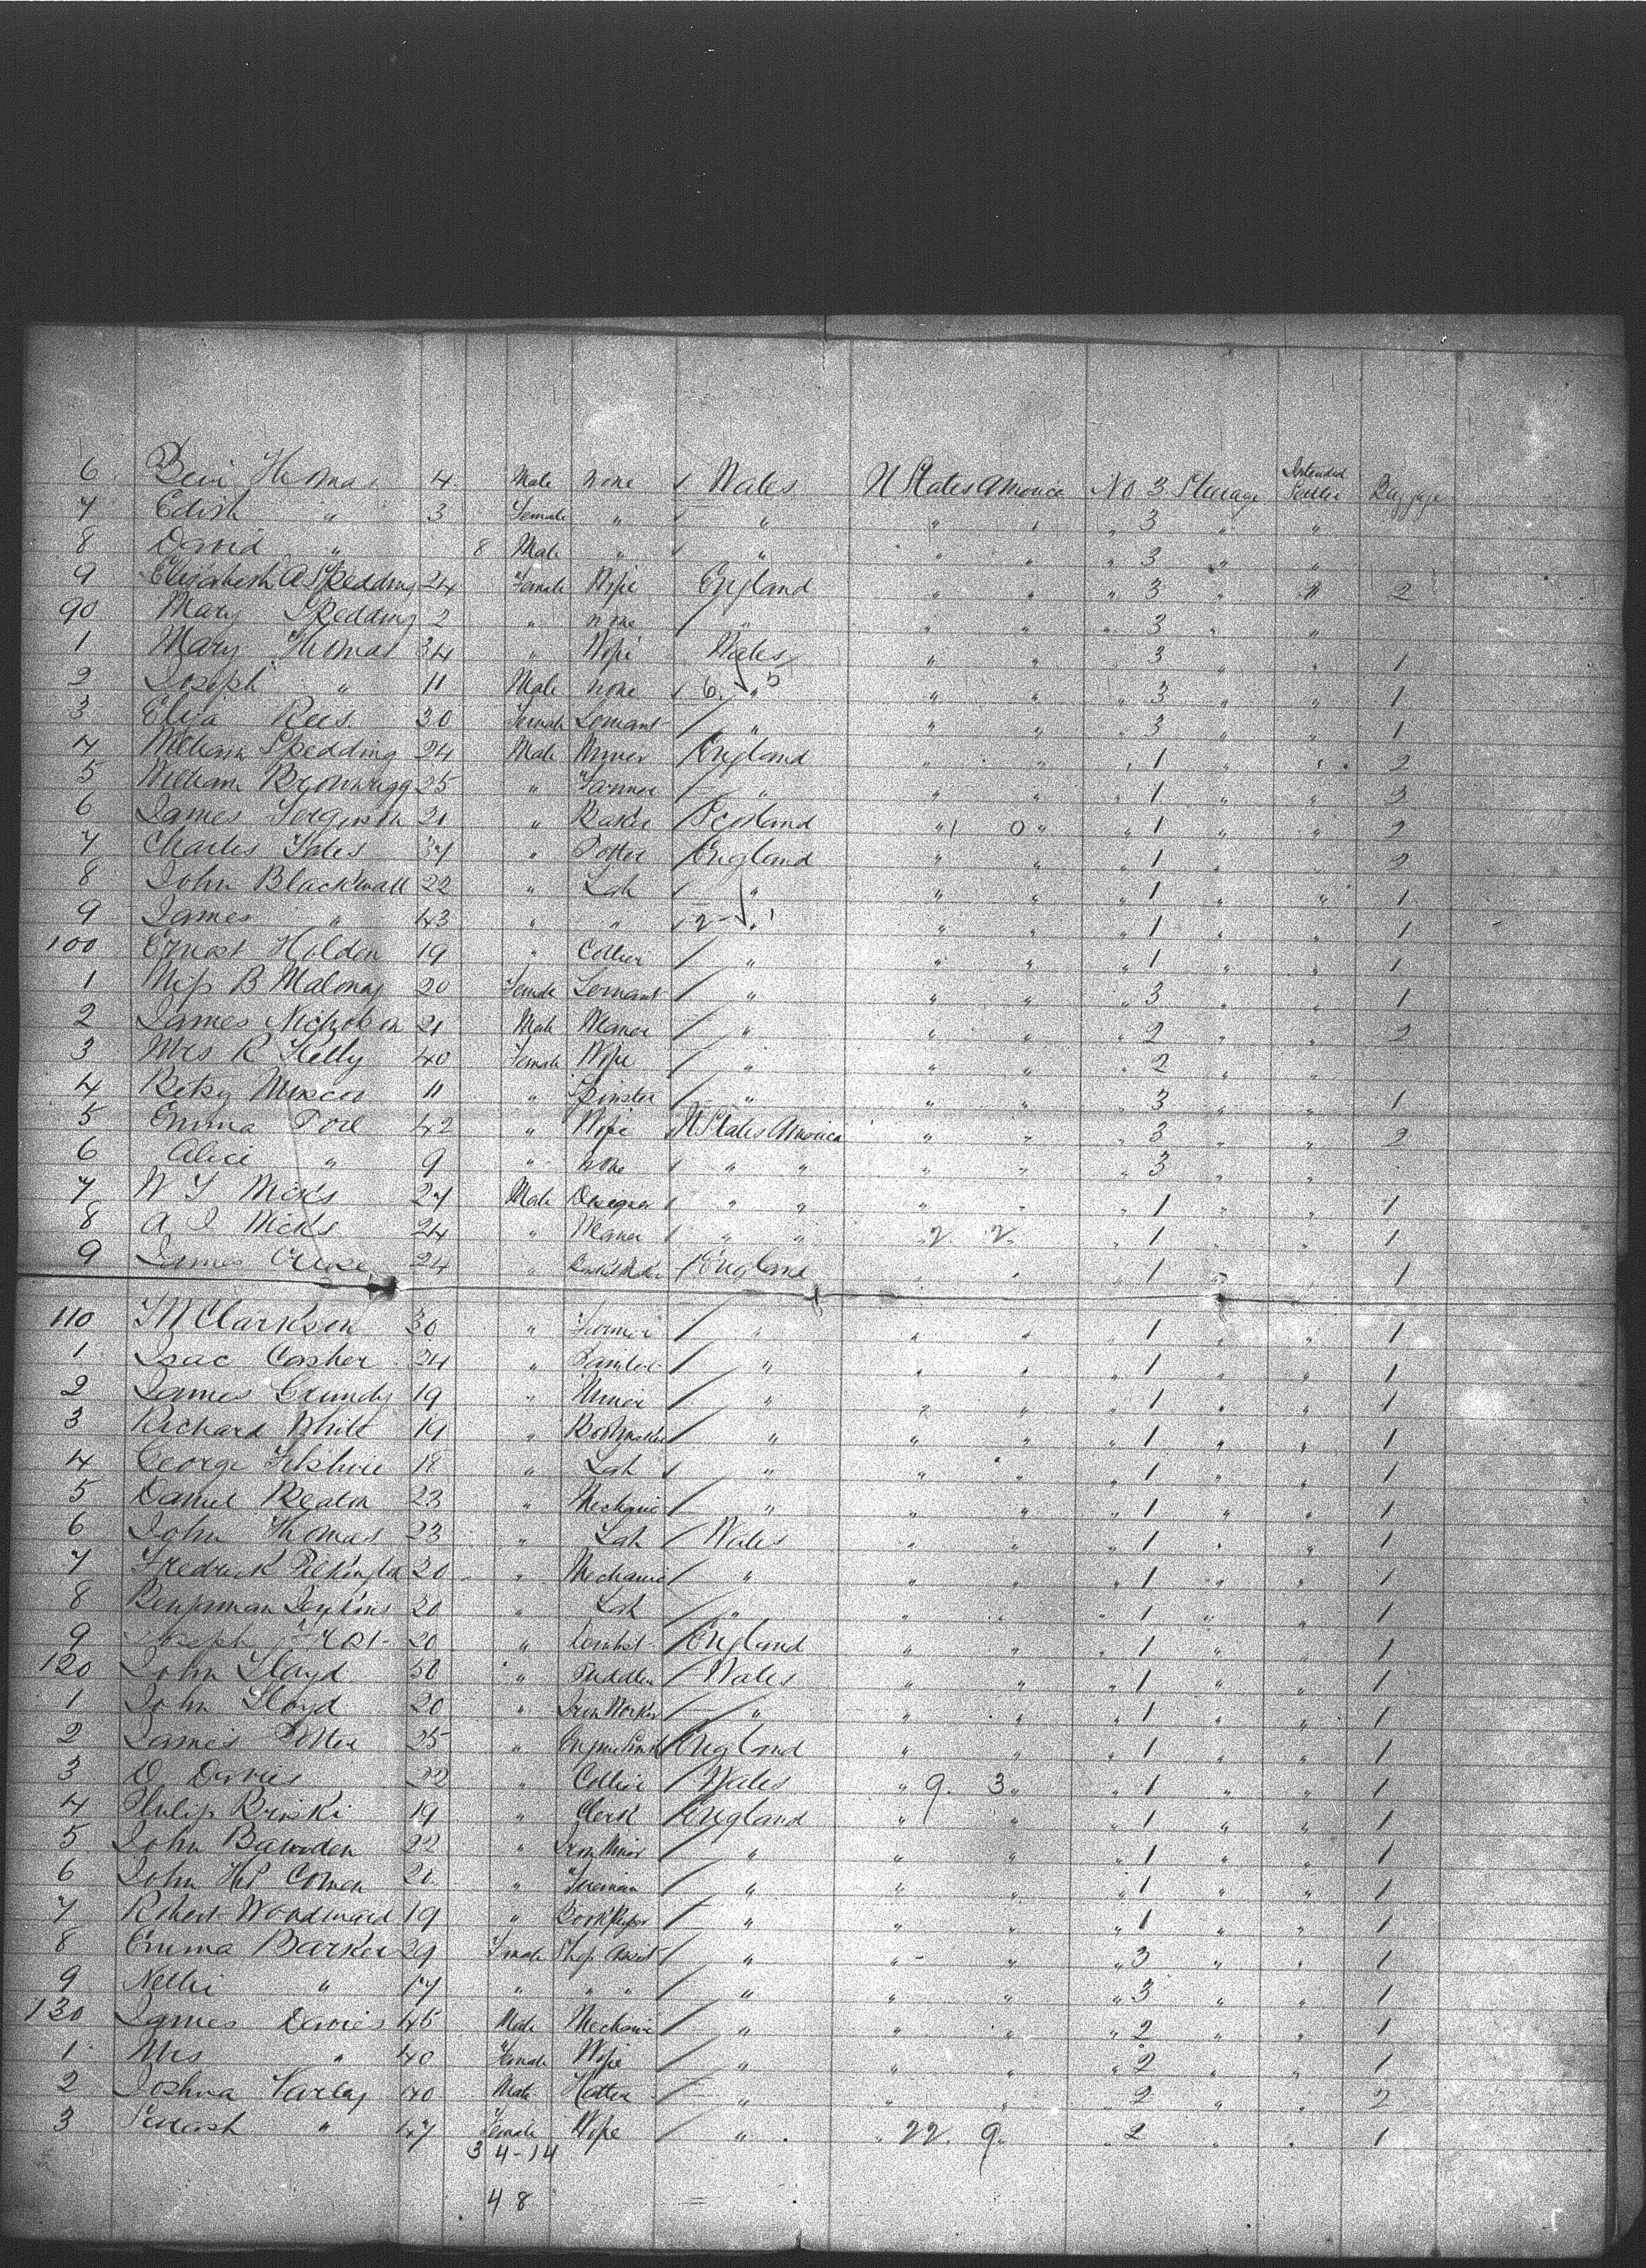 6 Beni Thomas 4 Male none Wales U States America No 3 Steerage Intended Settler Baggage
7 Edith " 3 Female " " " " " 3 " "
8 David " 8 Male " " " " " 3 " "
9 Elizabeth A Spedding 24 Female Wife England " " " 3 " " 2
90 Mary Spedding 2 " none / " " " " 3 " "
1 Mary Thomas 34 " Wife Wales " " 3 " " 1
2 Joseph " 11 Male none 6 " 5 " " " 3 " " 1
3 Eliza Rees 30 Female Servant / " " " " 3 " " 1
4 William Spedding 24 Male Miner England " " " 1 " " 2
5 William 25 " Farmer / " " " " 1 " " 3
6 James Ferguson 21 " Baker / Scotland " 1 0 " " 1 " " 2
7 Charles Yates " Potter / England " " " 1 " 2
8 John Blackwall 22 " Lab " " " " 1 " " 1
9 James " 43 " " 2 - 1 " " " 1 " " 1
100 Ernest Holden 19 " Collier / " " " " 1 " " 1
1 Miss B Malonay 20 Female Servant / " " " " 3 " " 1
2 James Nicholson 21 Male / " " " " 2 " " 2
3 Mrs R Kelly 40 Female Wife / " " " " 2 " "
4 Betsy 11 " Spinster / " " " " 3 " " 1
5 Emma 42 " Wife U States America " " " 3 " " 2
6 Alice " 9 " none " " " " " 3 " "
7 W Y Nicks 27 Male Designer " " " " " 1 " " 1
8 A J Nicks 24 " " " 22 22 " 1 " " 1
9 James 24 " / England " " " 1 " " 1
110 T M Clarkson 30 " / " " " " 1 " " 1
1 Isac Casher 24 " / " " " " 1 " " 1
2 James Grundy 19 " Miner / " " " " 1 " " 1
3 Richard White 19 " Bootmaker / " " " " 1 " " 1
4 George 18 " Lab " " " " 1 " " 1
5 Daniel 23 " Mechanic / " " " " 1 " " 1
6 John Thomas 23 " Lab / Wales " " " 1 " " 1
7 Fredrick Pilkington 20 " Mechanic / " " " " 1 " " 1
8 Benjaman Jenkins 20 " Lab / " " " " 1 " " 1
9 Joseph Frost 20 " / England " " " 1 " " 1
120 John Lloyd " Puddler / Wales " " " 1 " " 1
1 John Lloyd 20 " Iron Worker / " " " " 1 " " 1
2 James 25 " England " " " 1 " " 1
3 D Davies 22 " Collier / Wales " 9 3 " " 1 " " 1
4 Philip 19 " Clerk / England " " " 1 " " 1
5 John Bawden 22 " Iron Miner " " " " 1 " " 1
6 John H P Cowen " Fireman / " " " " 1 " " 1
7 Robert Woodward 19 " Bookkeeper / " " " " 1 " " 1
8 Emma Barker 29 Female Shop Assist / " " " " 3 " " 1
9 Nellie " 17 " " " / " " " " 3 " " 1
130 James Davies 45 Male Mechanic / " " " " 2 " " 1
1 Mrs " 40 Female Wife / " " " " 2 " " 1
2 Joshua Varley 40 Male Hatter / " " " " 2 " " 2
3 " 47 Female Wife / " " 22 9 " 2 " " 1
34-14
48